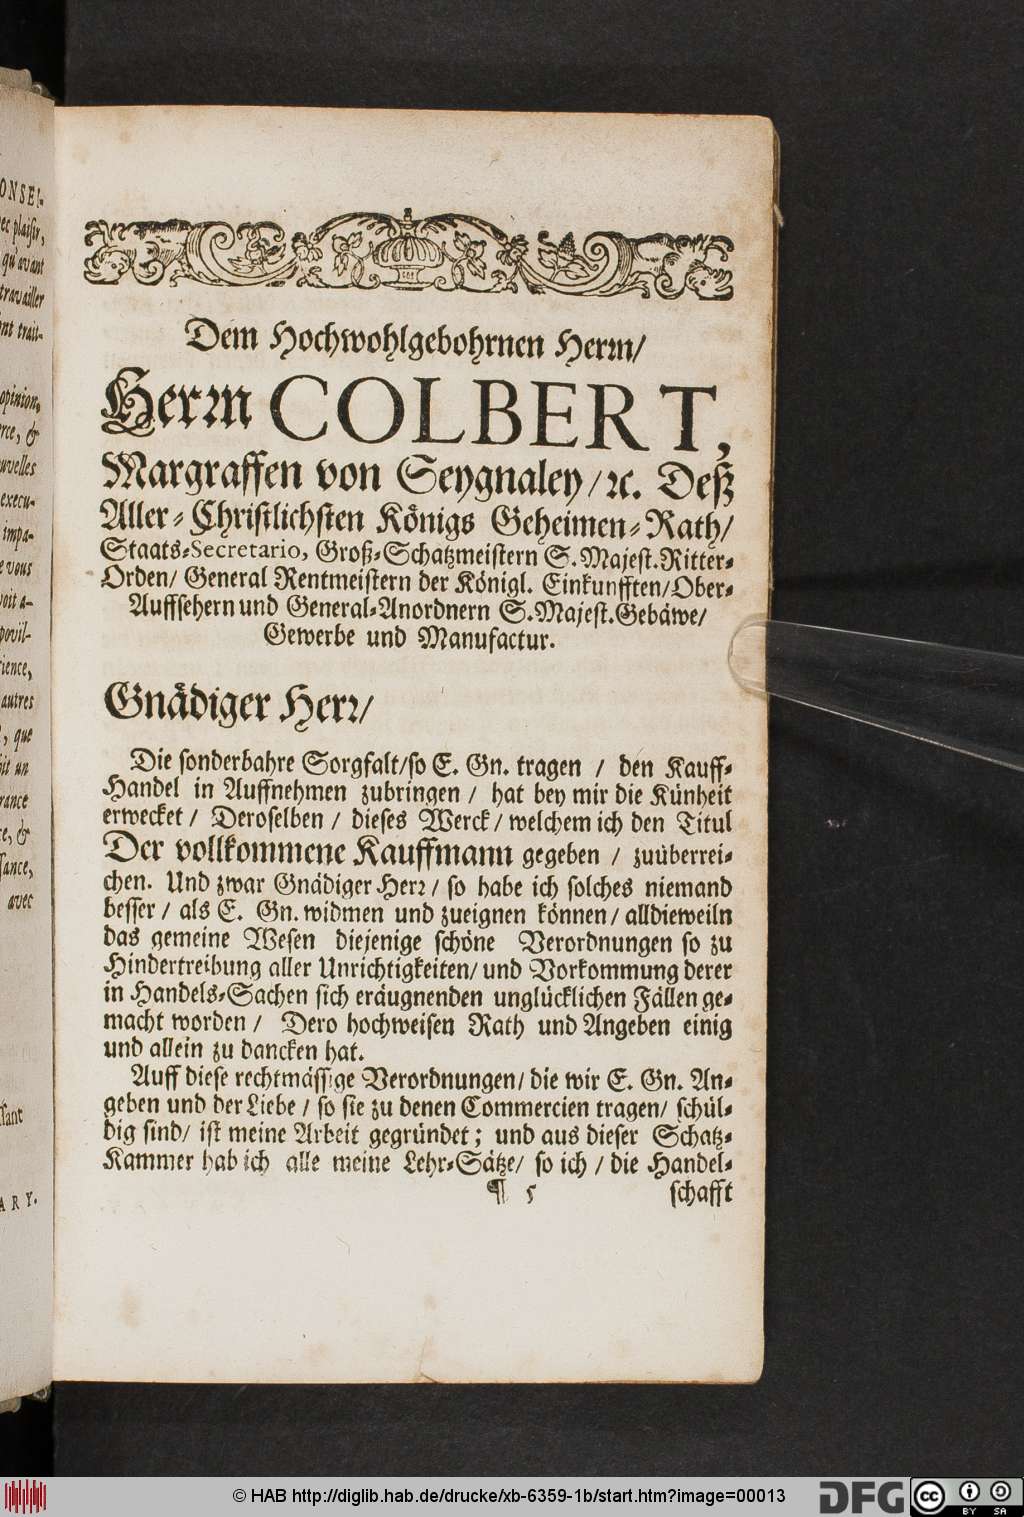 ONSEI-
ec plaisir,
qu'avant
travailler
nt trait-
opinion,
rce, &
uvelles
execu-
impa-
e vous
voit a-
povil-
ience,
autres
, que
oit un
rance
ce, &
sance,
avec
sant
ARY.
Dem Hochwohlgebohrnen Herrn/
Herrn COLBERT,
Margraffen von Seygnaley/ ꝛc. Deß
Aller-Christlichsten Königs Geheimen-Rath/
Staats-Secretario, Groß-Schatzmeistern S. Majest. Ritter-
Orden/ General Rentmeistern der Königl. Einkunfften/ Ober-
Auffsehern und General-Anordnern S. Majest. Gebäwe/
Gewerbe und Manufactur.
Gnädiger Herr/
Die sonderbahre Sorgfalt/ so E. Gn. tragen / den Kauff-
Handel in Auffnehmen zubringen / hat bey mir die Künheit
erwecket / Deroselben / dieses Werck / welchem ich den Titul
Der vollkommene Kauffmann gegeben / zuüberrei-
chen. Und zwar Gnädiger Herr / so habe ich solches niemand
besser / als E. Gn. widmen und zueignen können / alldieweiln
das gemeine Wesen diejenige schöne Verordnungen so zu
Hindertreibung aller Unrichtigkeiten/ und Vorkommung derer
in Handels-Sachen sich eräugnenden unglücklichen Fällen ge-
macht worden / Dero hochweisen Rath und Angeben einig
und allein zu dancken hat.
Auff diese rechtmässige Verordnungen/ die wir E. Gn. An-
geben und der Liebe / so sie zu denen Commercien tragen/ schül-
dig sind/ ist meine Arbeit gegründet; und aus dieser Schatz-
Kammer hab ich alle meine Lehr-Sätze/ so ich / die Handel-
¶ 5 schafft
© HAB http://diglib.hab.de/drucke/xb-6359-1b/start.htm?image=00013
DFG
cc BY SA